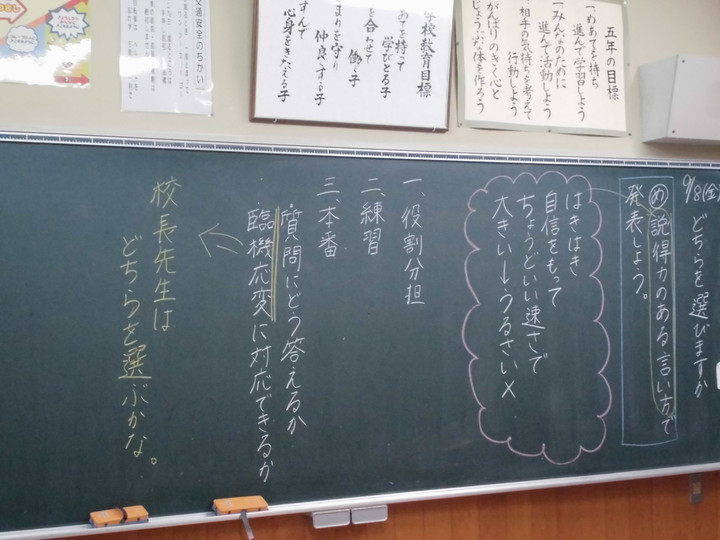 9/8(金) どちらを選びますか
め 説得力のある言い方で
発表しよう。
はきはき
自信をもって
ちょうどいい速さで
大きい→うるさい×
一、役割分担
二、練習
三、本番
・質問にどう答えるか
・臨機応変に対応できるか
校長先生は
どちらを選ぶかな。
五年の目標
一、めあてを持ち
進んで学習しよう
一、みんなのために
進んで活動しよう
相手の気持ちを考えて
行動しよう
がんばりのきく心と
じょうぶな体を作ろう
学校教育目標
めあてを持って
学びとる子
力を合わせて
働く子
きまりを守り
仲良くする子
すすんで
心身をきたえる子
交通安全のちかい